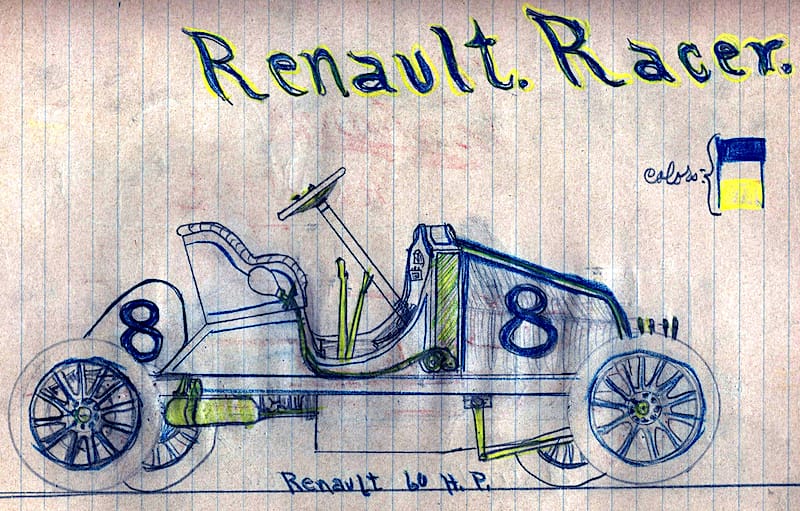 Renault. Racer.
colors:
8
8
Renault 60 H. P.